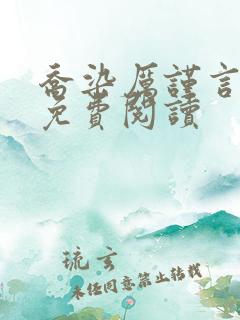 喬染厲謹言
免費閱讀
琉玄
未经同意禁止转载